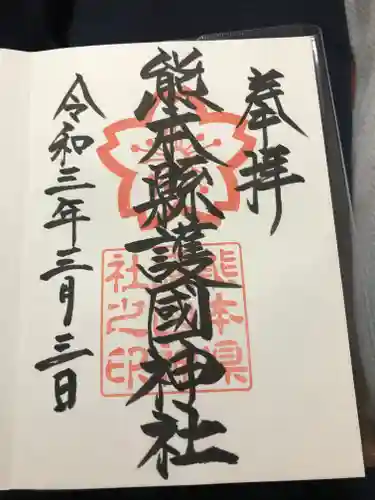 奉拝
熊本縣護國神社
令和三年三月三日
熊本県
社之印